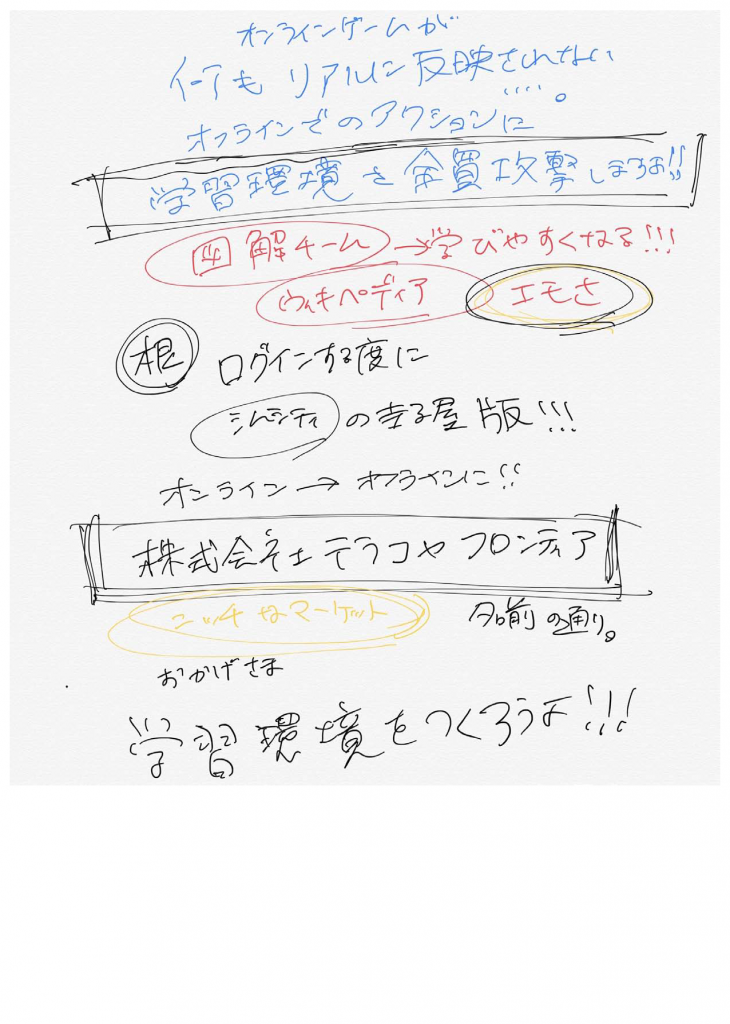 オンラインゲームが
何もリアルに反映されない
....。
オフラインでのアクションに
学習環境を全買攻撃しますよ!!
図解チーム→学びやすくなる!!!
ウィキペディア エモさ
根 ログインする度に
シムシティの寺子屋版!!!
オンライン→オフラインに!!
株式会社テラコヤフロンティア
ニッチなマーケット 名前の通り。
おかげさま
学習環境をつくろうよ!!!